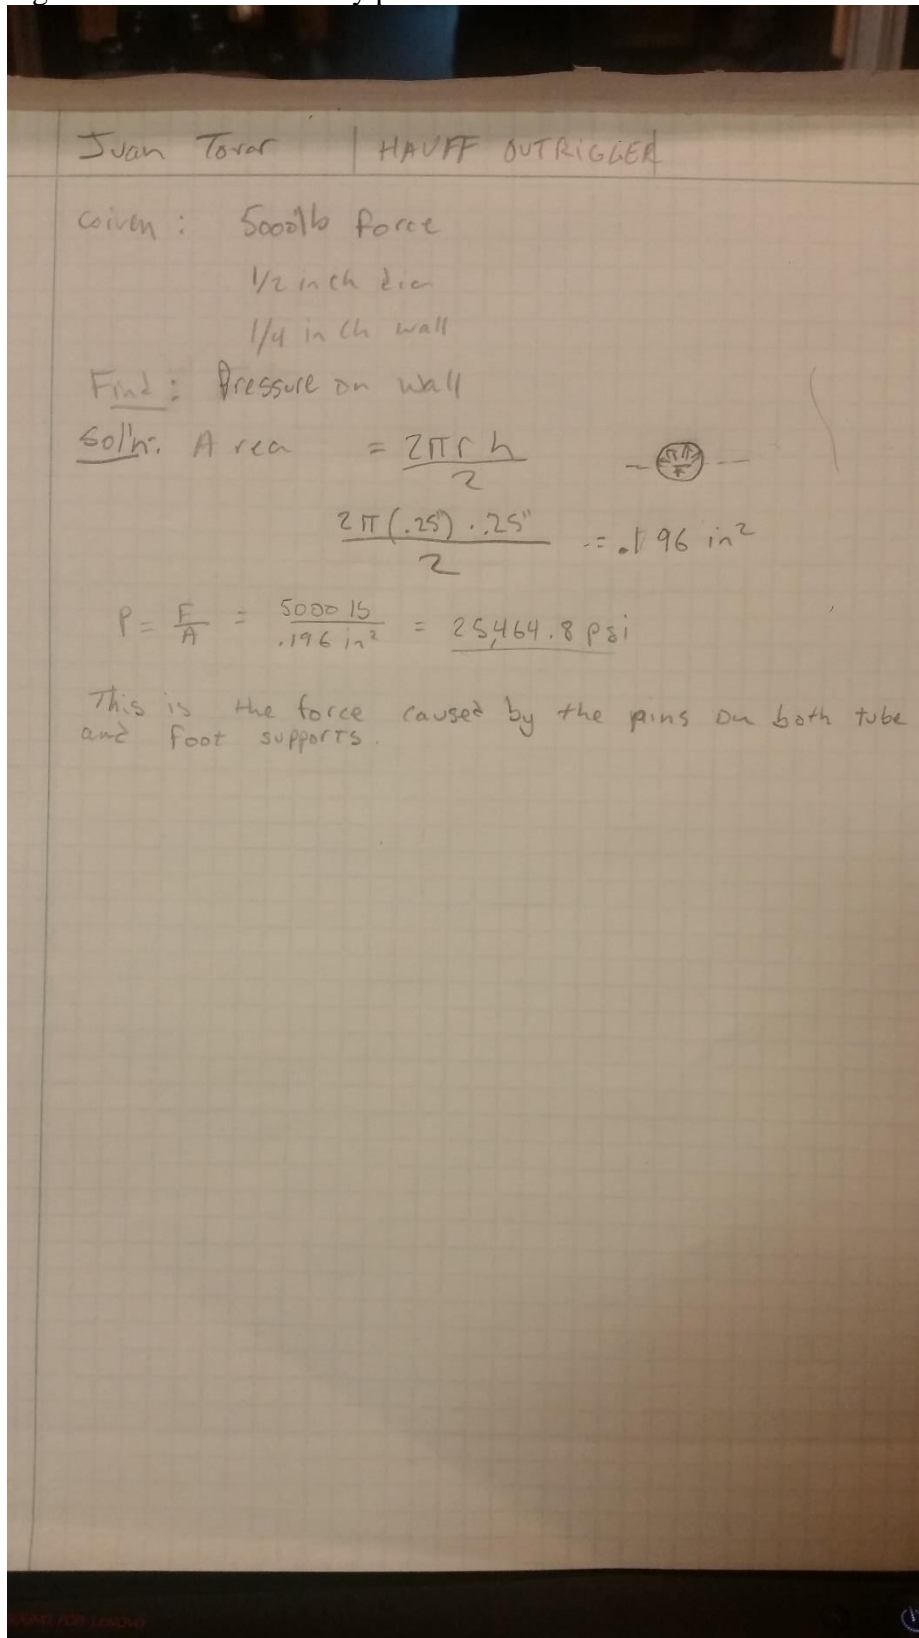 Juan Tovar | HAUFF OUTRIGGER
Given: 5000lb force
1/2 inch dia
1/4 inch wall
Find: Pressure on wall
Sol'n: Area = 2πrh / 2
2π(.25") · .25" / 2 = .196 in²
P = F/A = 5000 lb / .196 in² = 25,464.8 psi
This is the force caused by the pins on both tube
and foot supports.